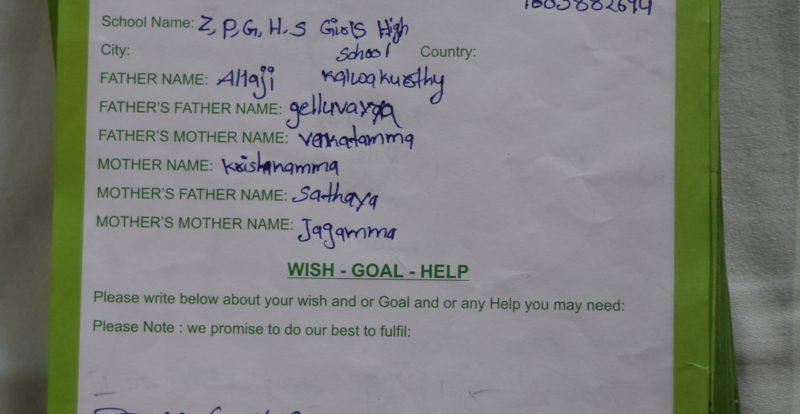 School Name: Z, P, G, H, S Girls High
School
City: Country:
FATHER NAME: Allaji Kalwakurthy
FATHER'S FATHER NAME:
FATHER'S MOTHER NAME: venkatamma
MOTHER NAME: Krishnamma
MOTHER'S FATHER NAME: Sathaya
MOTHER'S MOTHER NAME: Jagamma
WISH - GOAL - HELP
Please write below about your wish and or Goal and or any Help you may need:
Please Note : we promise to do our best to fulfil: